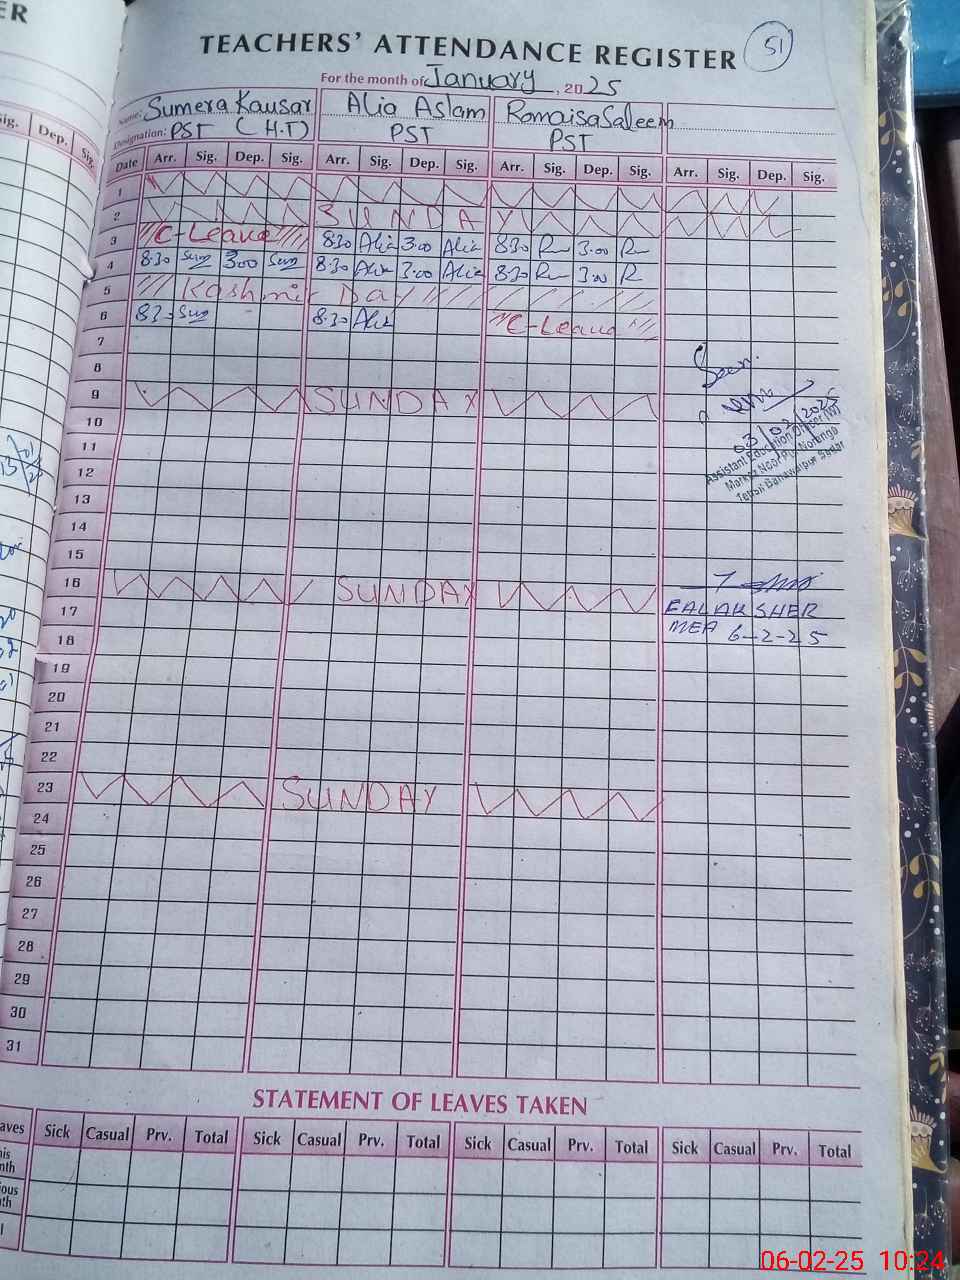 ER
TEACHERS' ATTENDANCE REGISTER 51
For the month of January, 2025
Name: Sumera Kausar Alia Aslam Romaisa Saleem
Designation: PST (H.T) PST PST
Sig. Dep. Sig.
Date Arr. Sig. Dep. Sig. Arr. Sig. Dep. Sig. Arr. Sig. Dep. Sig. Arr. Sig. Dep. Sig.
1
2 SUNDAY
3 C-Leave 8:30 Alia 3:00 Alia 8:30 R 3:00 R
4 8:30 Sum 3:00 Sum 8:30 Alia 3:00 Alia 8:30 R 3:00 R
5 Kashmir Day
6 8:30 Sum 8:30 Alia C-Leave
7
8
Seen.
9 SUNDAY
10
03/02/2025
11
Assistant Education Officer (W)
12
Markaz Noor Pur Noranga
Tehsil Bahawalpur Sadar
13
14
15
16 SUNDAY
17 FALAK SHER
18 MEA 6-2-25
19
20
21
22
23 SUNDAY
24
25
26
27
28
29
30
31
STATEMENT OF LEAVES TAKEN
aves Sick Casual Prv. Total Sick Casual Prv. Total Sick Casual Prv. Total Sick Casual Prv. Total
his
nth
ious
th
l
06-02-25 10:24